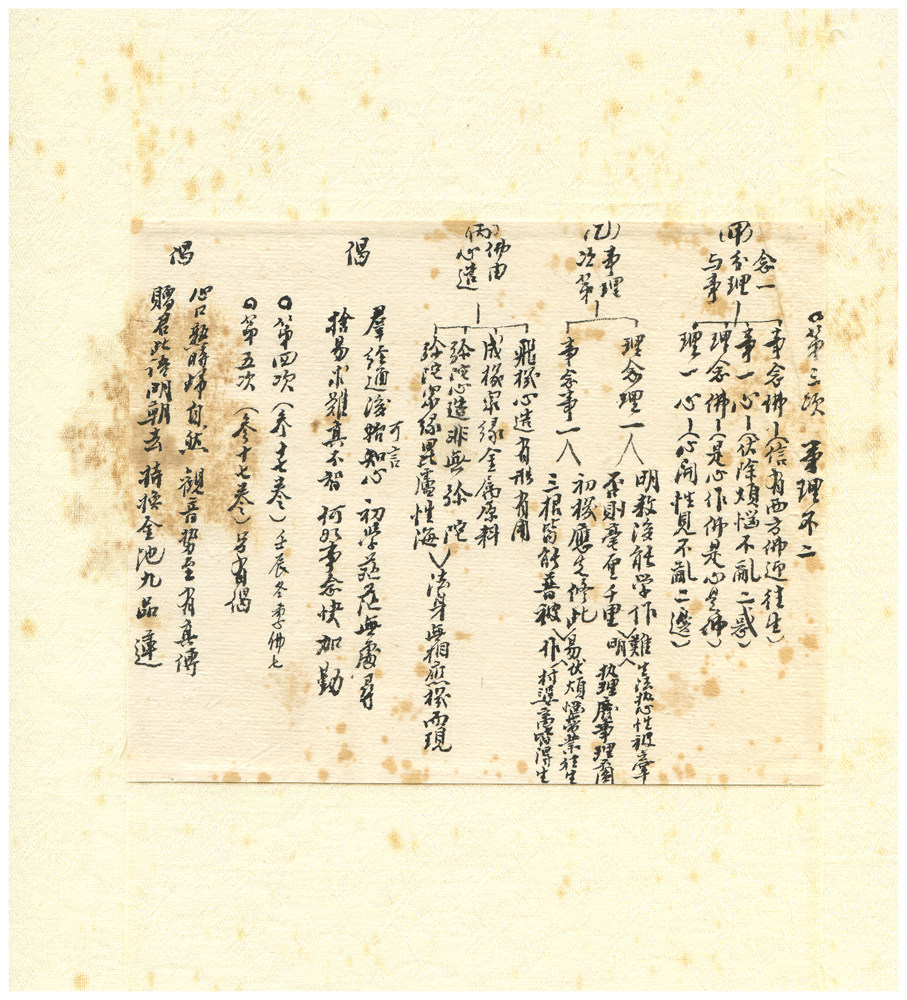 第三次 事理不二
(甲)分理与事
念一
事念佛(信有西方佛迎往生)
事一心(伏除煩惱不亂二惑)
理念佛(是心作佛是心是佛)
理一心(心開性見不亂二邊)
(乙)事理次第
理念理一
明教後能學作難
生法執心性被輩
否則毫釐千里明
執理廢事理圓
事念事一
初機應先修此易
伏煩惱帶業往生
三根皆能普被作
村婆童皆得生
(丙)佛由心造
飛機心造有形有用
成機眾緣金屬原料
弥陀心造非無弥陀
弥陀眾緣毘盧性海
法身無相應機而現
偈
羣經通後始知心 初學茫茫無處尋
可言
捨易求難真不智 何如事念快加勤
第四次(参十七卷)壬辰冬季佛七
第五次(参十七卷)另有偈
偈
心口熟時歸自然 觀音勢至有真傳
贈君此語明朝去 持換金池九品蓮